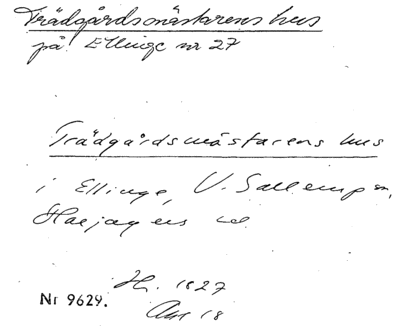 Trädgårdsmästarens hus
på Ellinge nr 27
Trädgårdsmästarens hus
i Ellinge, V. Sallerup sn,
Harjagers
H. 1827
Nr 9629.
18